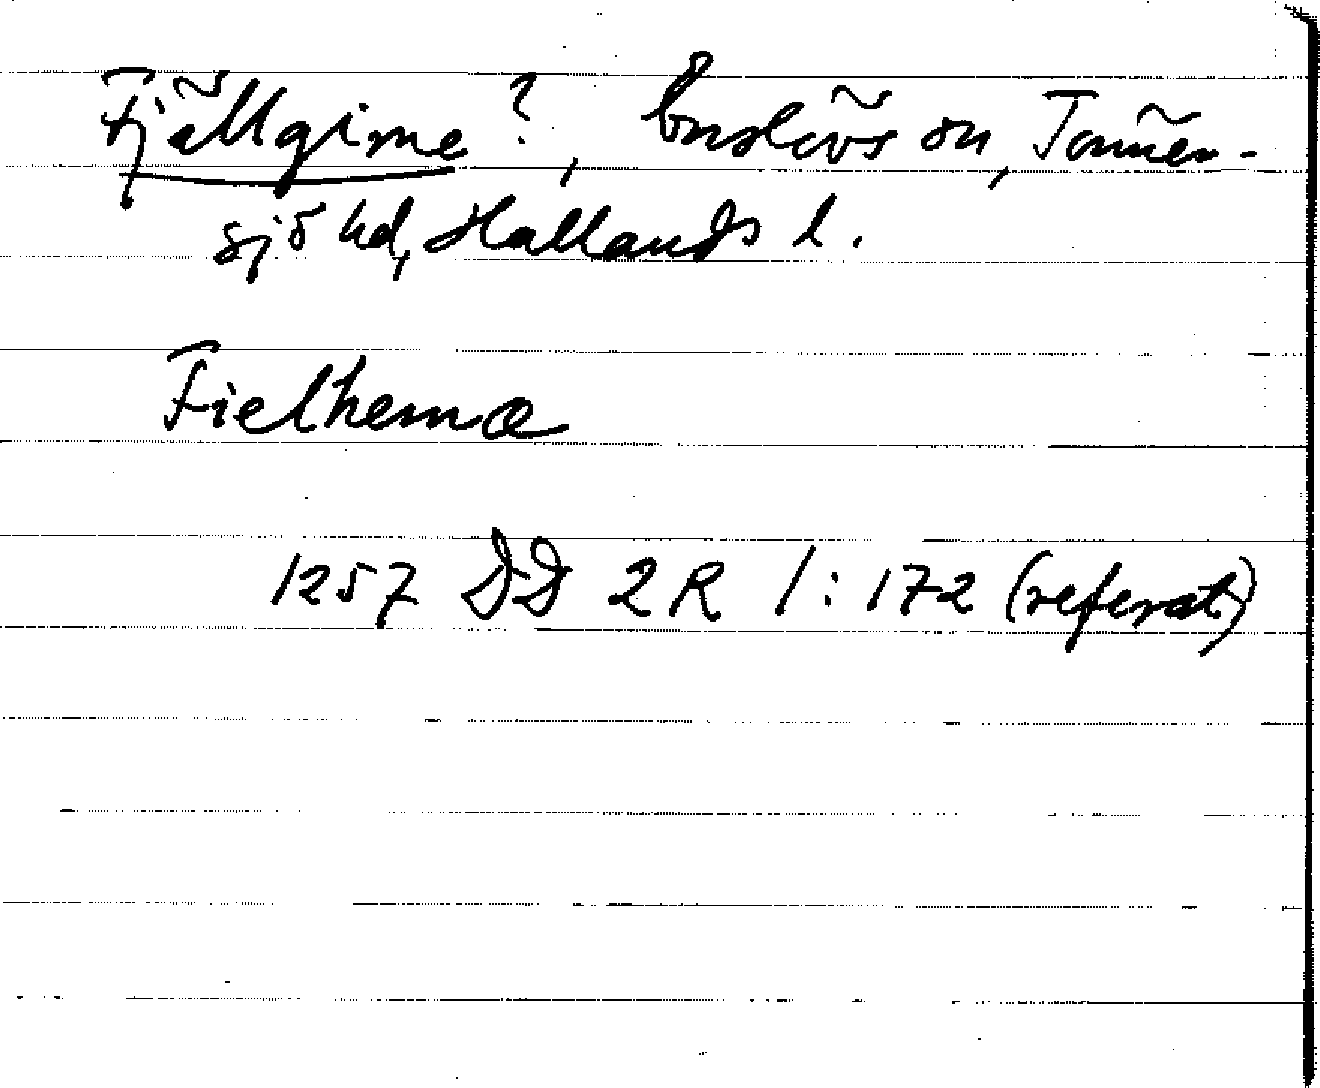 Fjällgime?, Enslövs sn, Tönner-
sjö hd, Hallands l.
Fielhemæ
1257 DD 2R 1:172 (referat)